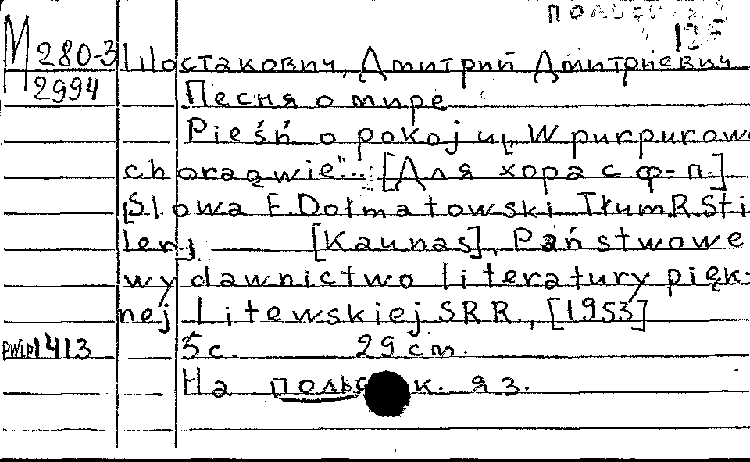 М 280-3
2994
Шостакович, Дмитрий Дмитриевич
Песня о мире
Pieśń o pokoju „W purpurowe
chorągwie"... [Для хора с ф-п.]
Słowa E. Dołmatowski. Tłum. R. Sti
lerj [Kaunas], Państwowe
wydawnictwo literatury pięk-
nej Litewskiej SRR, [1953]
5 с. 29 cm.
pwlp1413
На польск. яз.